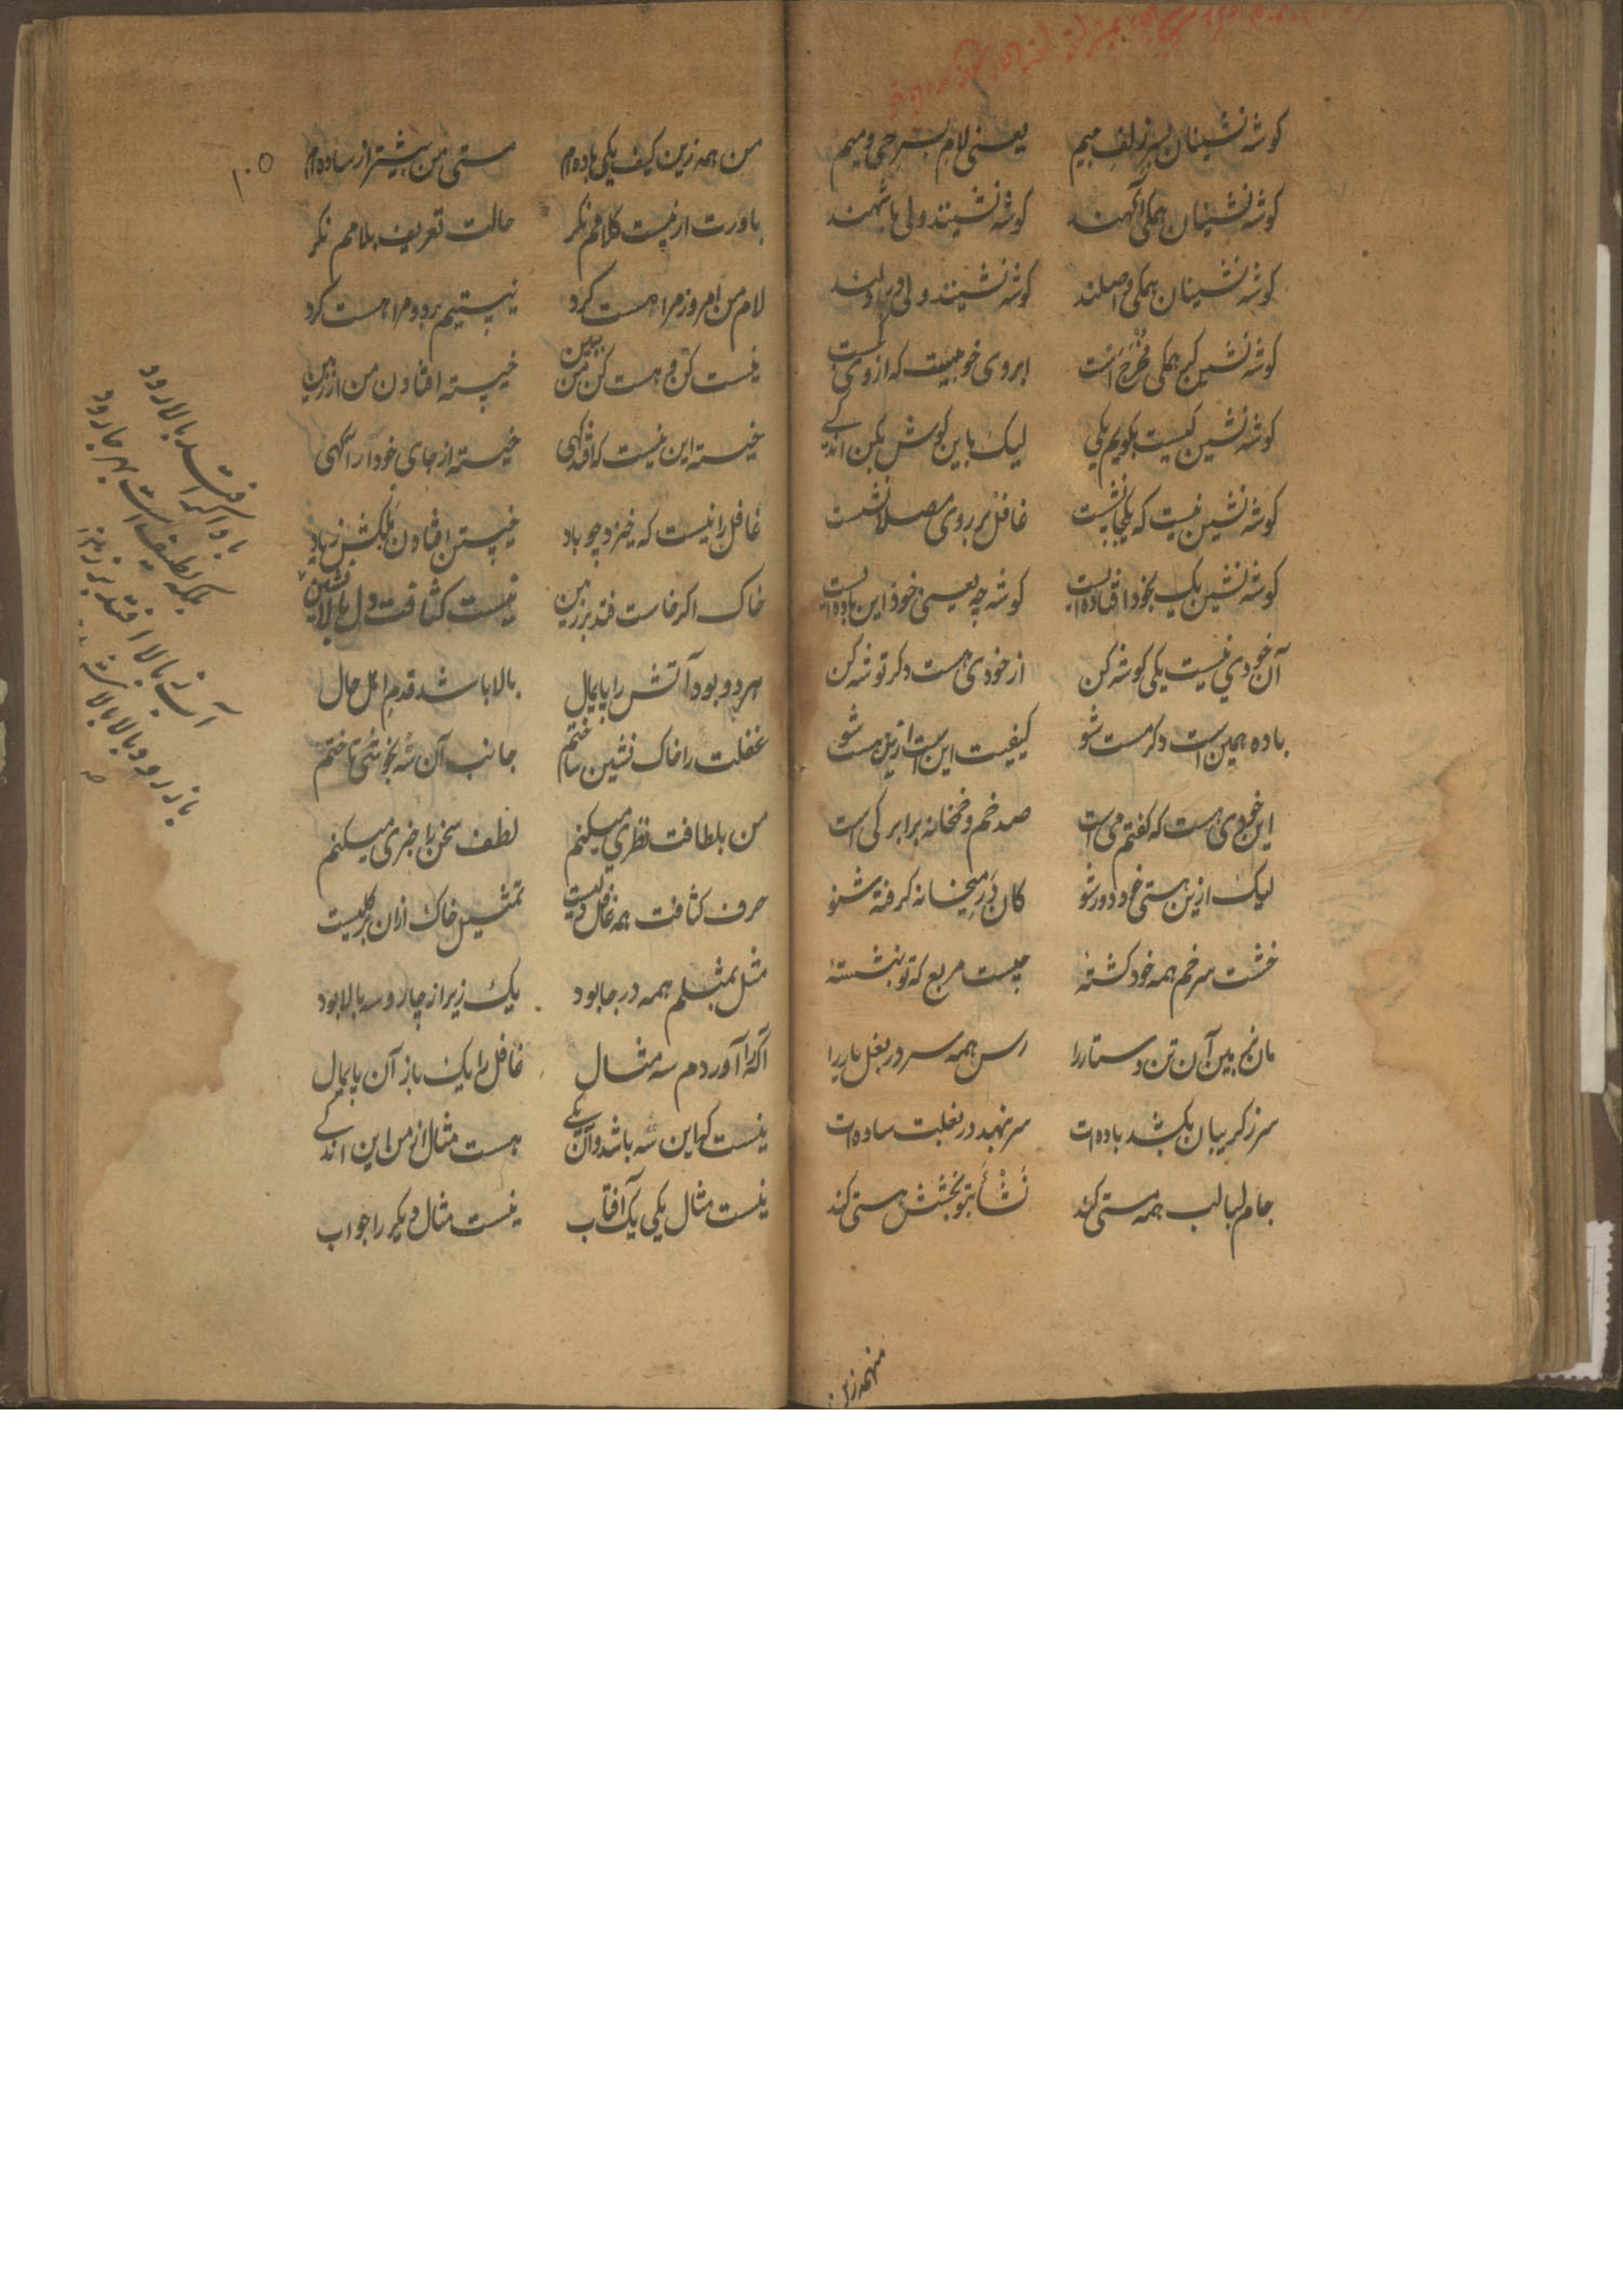 کوشه نشینان بسر زلف میم یعنی لام بسر حی و میم
کوشه نشینان همکی آکهند کوشه نشینند ولی با شهند
کوشه نشینان همکی واصلند کوشه نشینند ولی در دلند
کوشه نشین که همکی مخرج است ابروی خوبیست که از وی
کوشه نشین کیست بکویم یکی لیک باین کوش بکن اندکی
کوشه نشین نیست که یکجا نشست غافل بر روی مصلا نشست
کوشه نشین یک بخود افتاده ایست کوشه چه یعنی خود این باده ایست
آن خودی نیست یکی کوشه کن از خودی هست دکر توشه کن
باده همین است دکر مست شو کیفیت این است ازین هست شو
این خودی هست که کفتم می است صد خم و خمخانه برابر کی است
لیک ازین هستی خود دور شو کان در میخانه کرفته شنو
خشت سر خم همه خود کشتهٔ چیست مربع که تو بنشستهٔ
مان نم ببین آن تن و ستار را رس همه سر در بغل یار را
سر ز کریبان بکشد باده‌ات سر نهد در بغلت ساده‌ات
جام لبالب همه مستی کند نشأ بتو بخشش هستی کند
۱۰۵
من همه زین کیف یکی باده‌ام مستی من بیشتر از ساده‌ام
باورت ار نیست کلامم نکر حالت تعریف بلامم نکر
لام من امروز مرا هست کرد نیستیم برد و مرا هست کرد
نیست کن و هست کن من ببین خیسته افتادن من از زمین
خیسته این نیست که افتد کهی خیسته از جای خود آر آکهی
غافل را نیست که خیزد چو باد خیستن افتادن بکش ز یاد
خاک اکر خاست فتد بر زمین نیست کثافت دل بالا نشین
هر دو بود آتش را پایمال بالا باشد قدم اهل حال
غفلت را خاک نشین ساختم جانب آن شه بخوشی تاختم
من بلطافت نظری میکنم لطف سخن را خبری میکنم
حرف کثافت همه غافل تمثیل خاک ازان بر کلیست
مثل بمثلم همه در جا بود یک زیر از چار و سه بالا بود
آکه را آوردم سه مثال غافل را یک باز آن پایمال
نیست که این سه باشد و آن یکی هست مثال از من این اندکی
نیست مثال یکی یک آفتاب نیست مثال دیکر را جواب
باد اکر افتد بالا رود
بلکه لطیف است بهر جا رود
آب ز بالا افتد بر زمین
باز رود بالا بالا